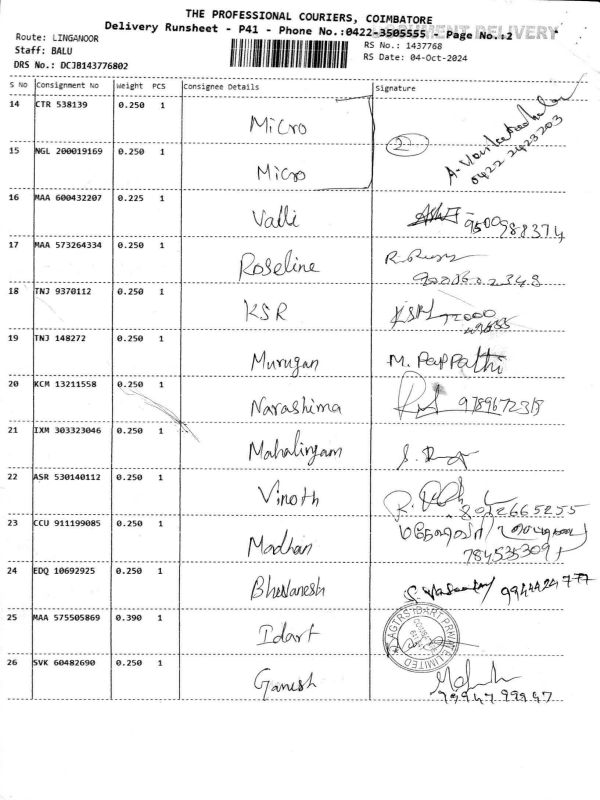 THE PROFESSIONAL COURIERS, COIMBATORE
DOCUMENT DELIVERY
Delivery Runsheet - P41 - Phone No.:0422-3505555 - Page No.:2
Route: LINGANOOR
Staff: BALU
DRS No.: DCJB143776802
RS No.: 1437768
RS Date: 04-Oct-2024
S No Consignment No Weight PCS Consignee Details Signature
14 CTR 538139 0.250 1 Micro
2
0422 2423203
15 NGL 200019169 0.250 1 Micro
16 MAA 600432207 0.225 1 Valli 9500988374
17 MAA 573264334 0.250 1 Roseline
18 TNJ 9370112 0.250 1 KSR
19 TNJ 148272 0.250 1 Murugan M. PapPathi
20 KCM 13211558 0.250 1 Narashima
21 IXM 303323046 0.250 1 Mahalingam
22 ASR 530140112 0.250 1 Vinoth 8022665255
23 CCU 911199085 0.250 1 Madhan
24 EDQ 10692925 0.250 1 Bhuvanesh
25 MAA 575505869 0.390 1 Idart
26 SVK 60482690 0.250 1 Ganesh
99947 99947